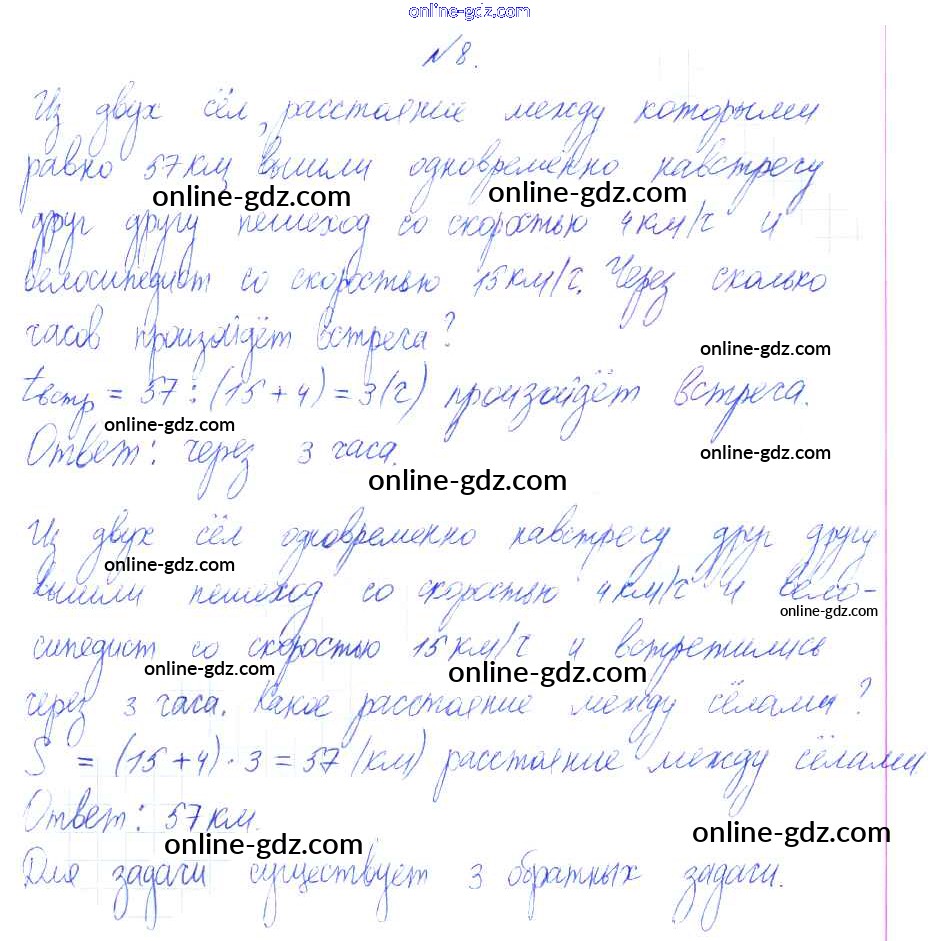 online-gdz.com
№8.
Из двух сёл, расстояние между которыми
равно 57 км, вышли одновременно навстречу
online-gdz.com online-gdz.com
друг другу пешеход со скоростью 4 км/ч и
велосипедист со скоростью 15 км/ч. Через сколько
часов произойдёт встреча?
online-gdz.com
tвстр = 57 : (15 + 4) = 3 (ч) произойдёт встреча.
online-gdz.com
Ответ: через 3 часа.
online-gdz.com
online-gdz.com
Из двух сёл одновременно навстречу друг другу
online-gdz.com
вышли пешеход со скоростью 4 км/ч и вело-
online-gdz.com
сипедист со скоростью 15 км/ч и встретились
online-gdz.com online-gdz.com
через 3 часа. Какое расстояние между сёлами?
S = (15 + 4) · 3 = 57 (км) расстояние между сёлами
Ответ: 57 км.
online-gdz.com
online-gdz.com
Для задачи существует 3 обратных задачи.